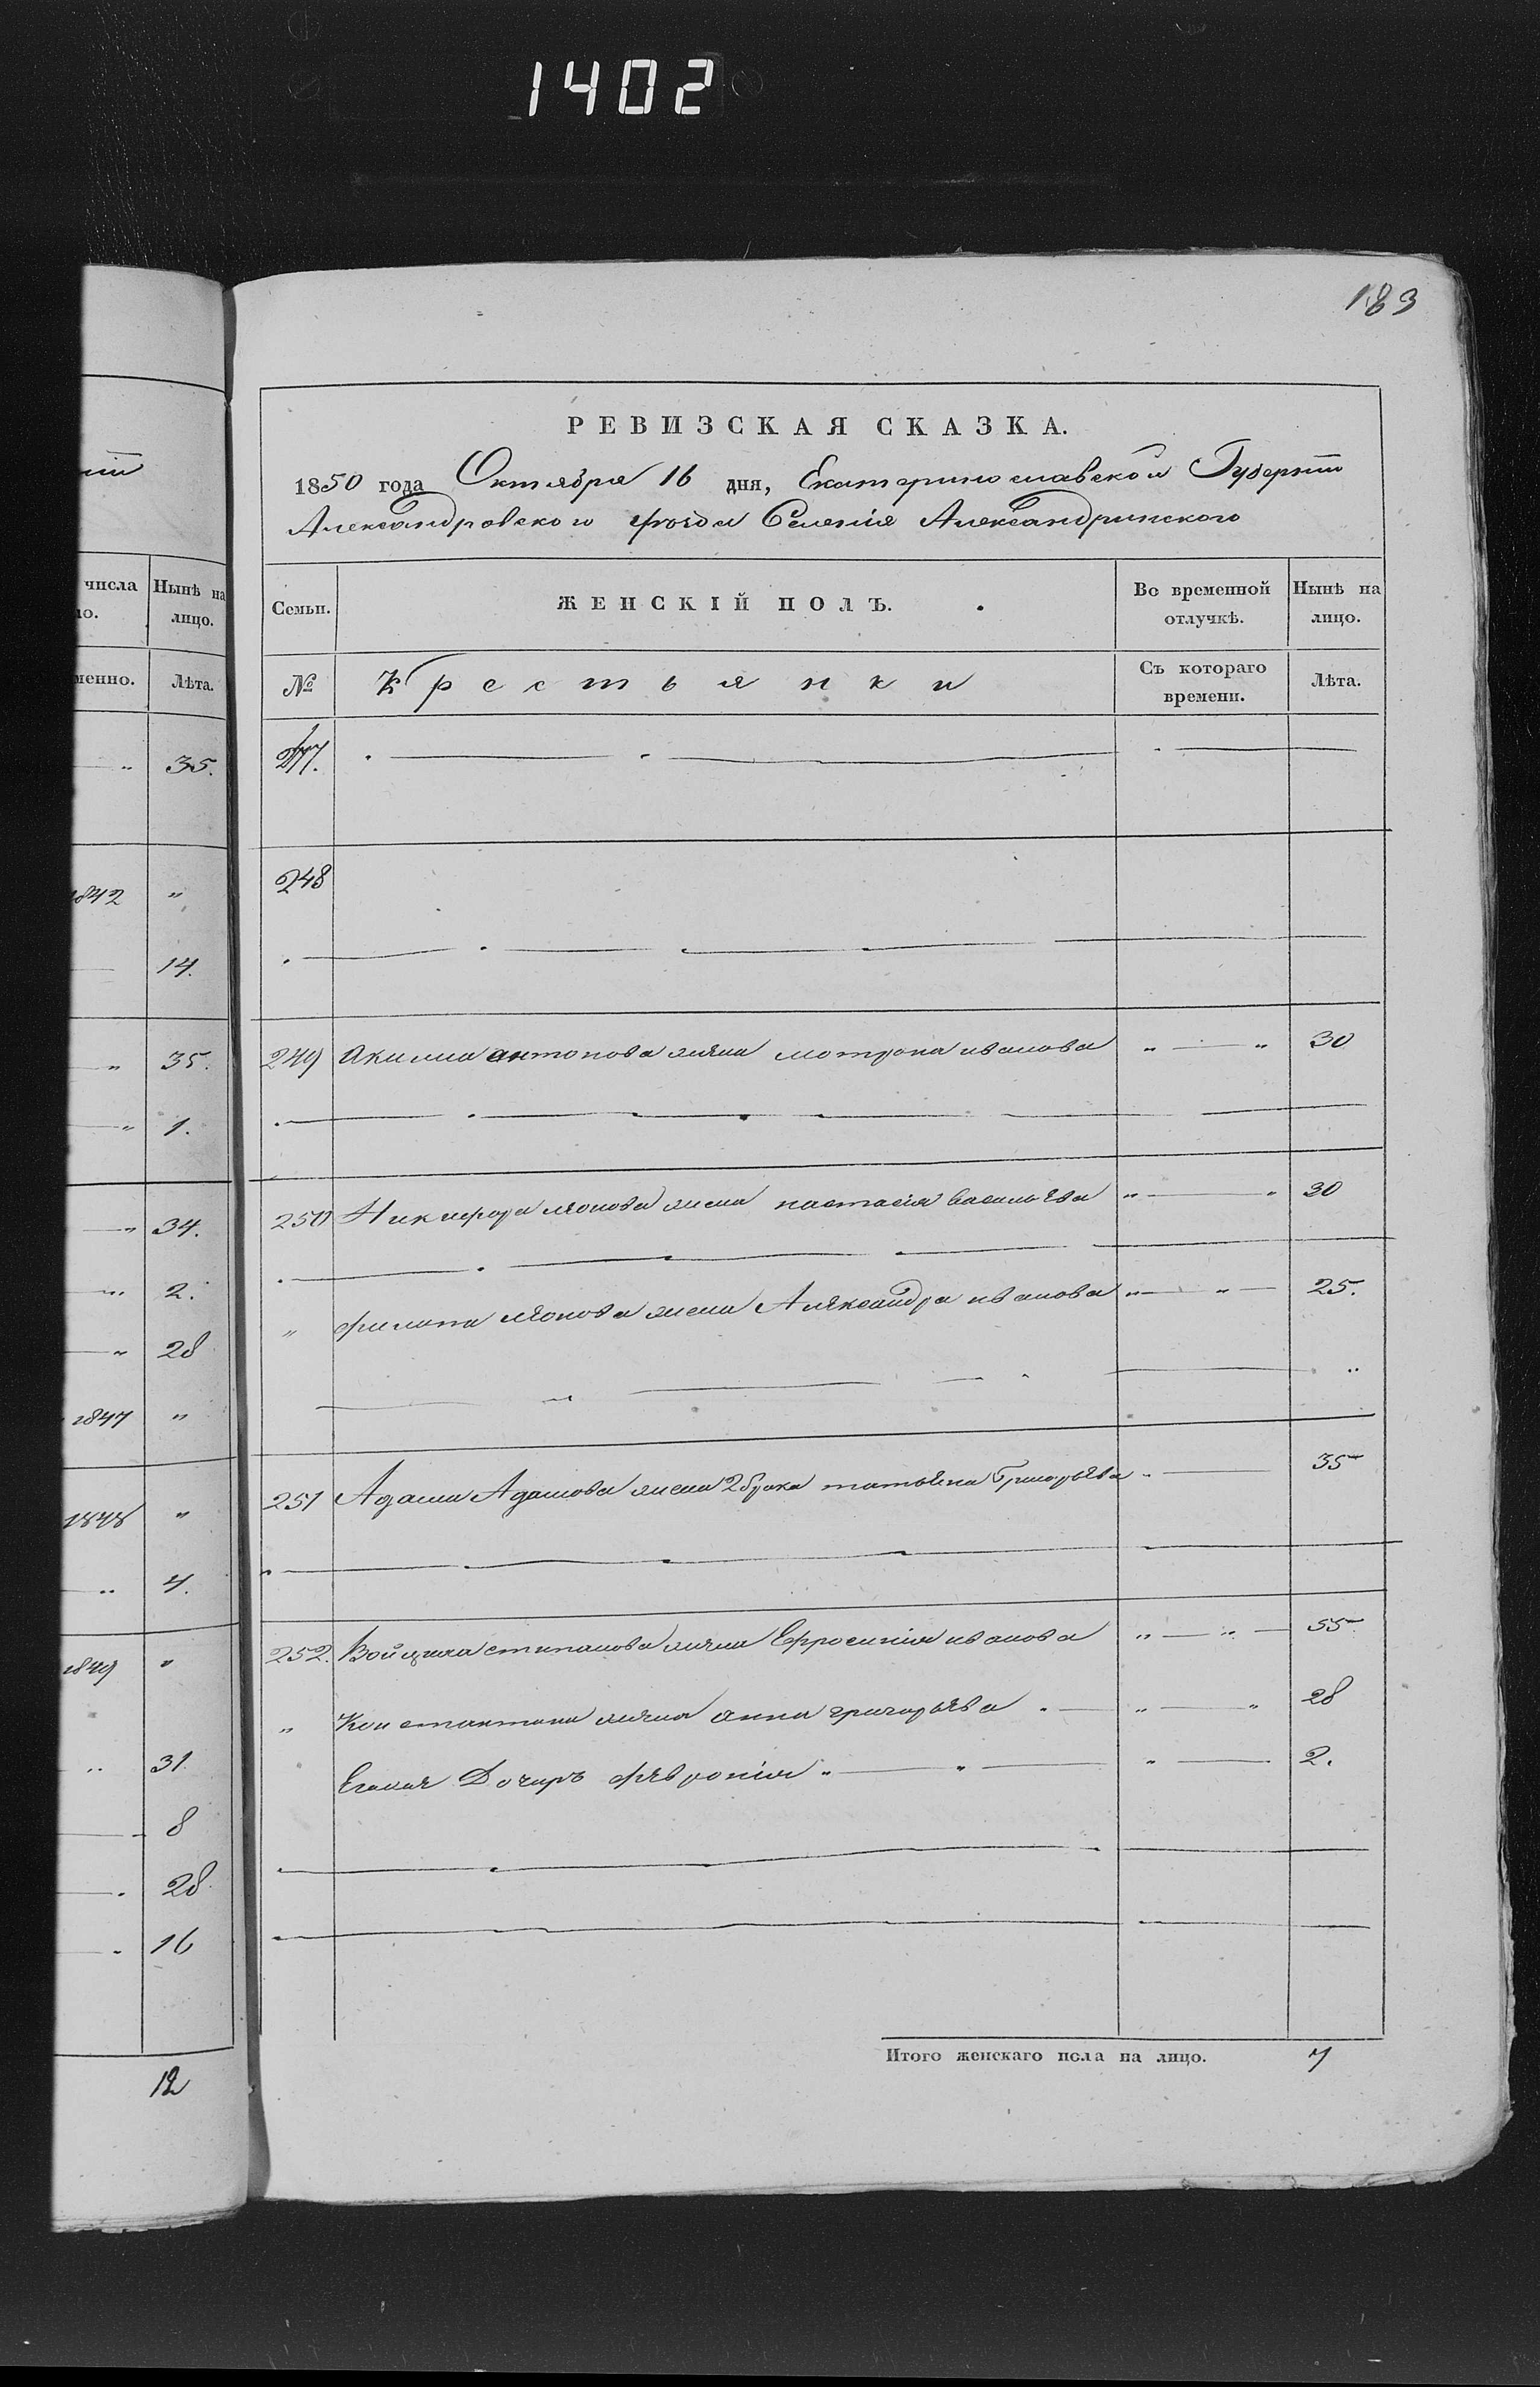 1402
183
РЕВИЗСКАЯ СКАЗКА.
1850 года Октября 16 дня, Екатеринославской Губерніи
Александровского уѣзда Селенія Александринского
числа
Нынѣ на
лицо.
Семьи.
ЖЕНСКІЙ ПОЛЪ.
Во временной
отлучкѣ.
Нынѣ на
лицо.
менно.
Лѣта.
№
Крестьянки
Съ котораго
времени.
Лѣта.
" 35.
1842 "
14.
" 35.
" 1.
" 34.
" 2.
" 28
1847 "
1848 "
" 4.
1849 "
" 31
8
28
16
12
247.
248
249 Акима антонова жена мотрона иванова " " 30
250 Никифора леонова жена настасія васильева " " 30
" филипа леонова жена Александра иванова " " 25.
251 Адама Адамова жена 2 брака татьяна Григорьева 35
252. Войцила степанова жена Ефросинія иванова " " 55
" Константина жена анна григорьева " " 28
Егоная Дочерь февронія " " 2.
Итого женскаго пола на лицо. 7